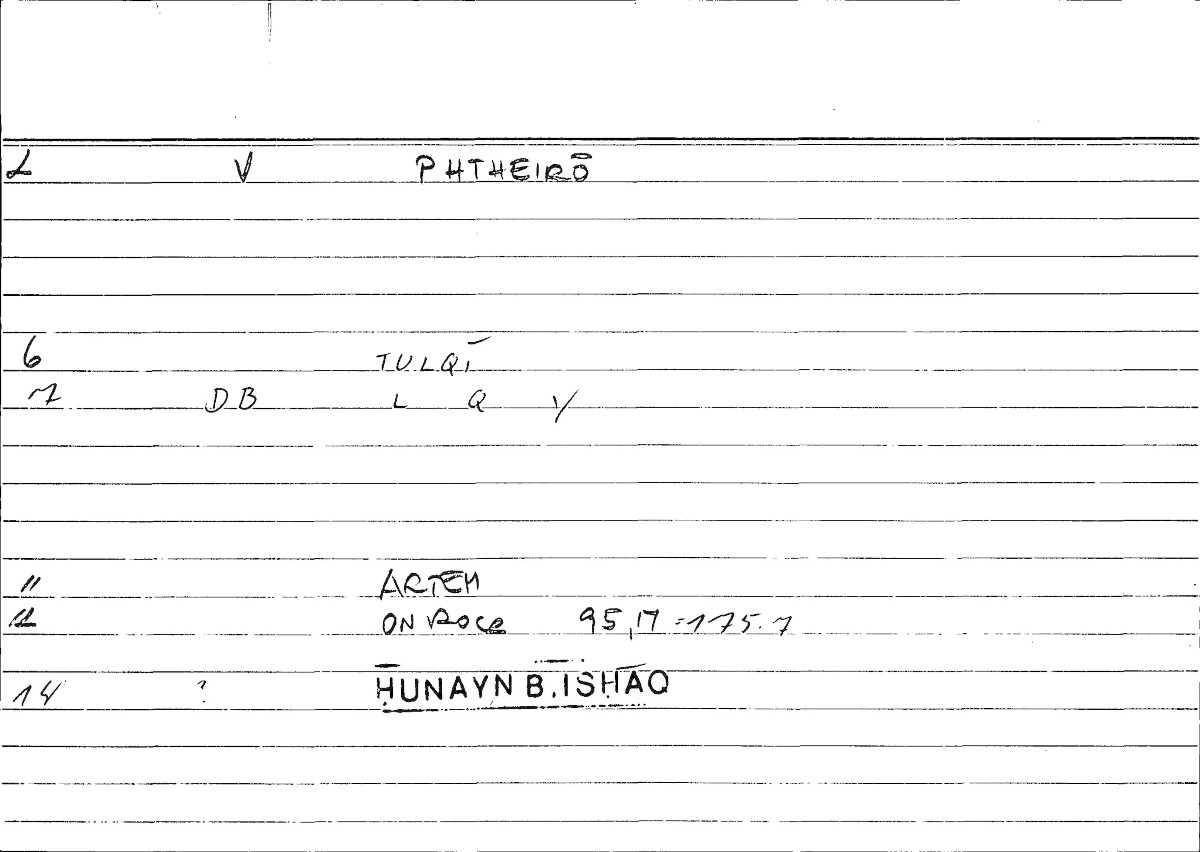 V PHTHEIRŌ
6 TULQĪ
7 DB L Q Y
11 ARTEM
12 ON 95,17-175.7
14 ? ḤUNAYN B. ISḤĀQ